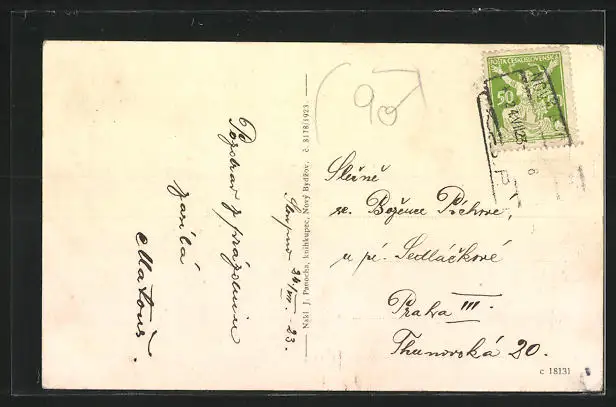 Pozdrav z prázdnin
zasílá
Matouš.
Sloupno 24/VII - 23.
Nákl. J. Pamocha, knihkupec, Nový Bydžov. č. 8178/1923.
90
POŠTA ČESKOSLOVENSKÁ
50
Slečně
sl. Božence Píchové,
u pí. Sedláčkové
Praha III.
Thunovská 20.
c 18131